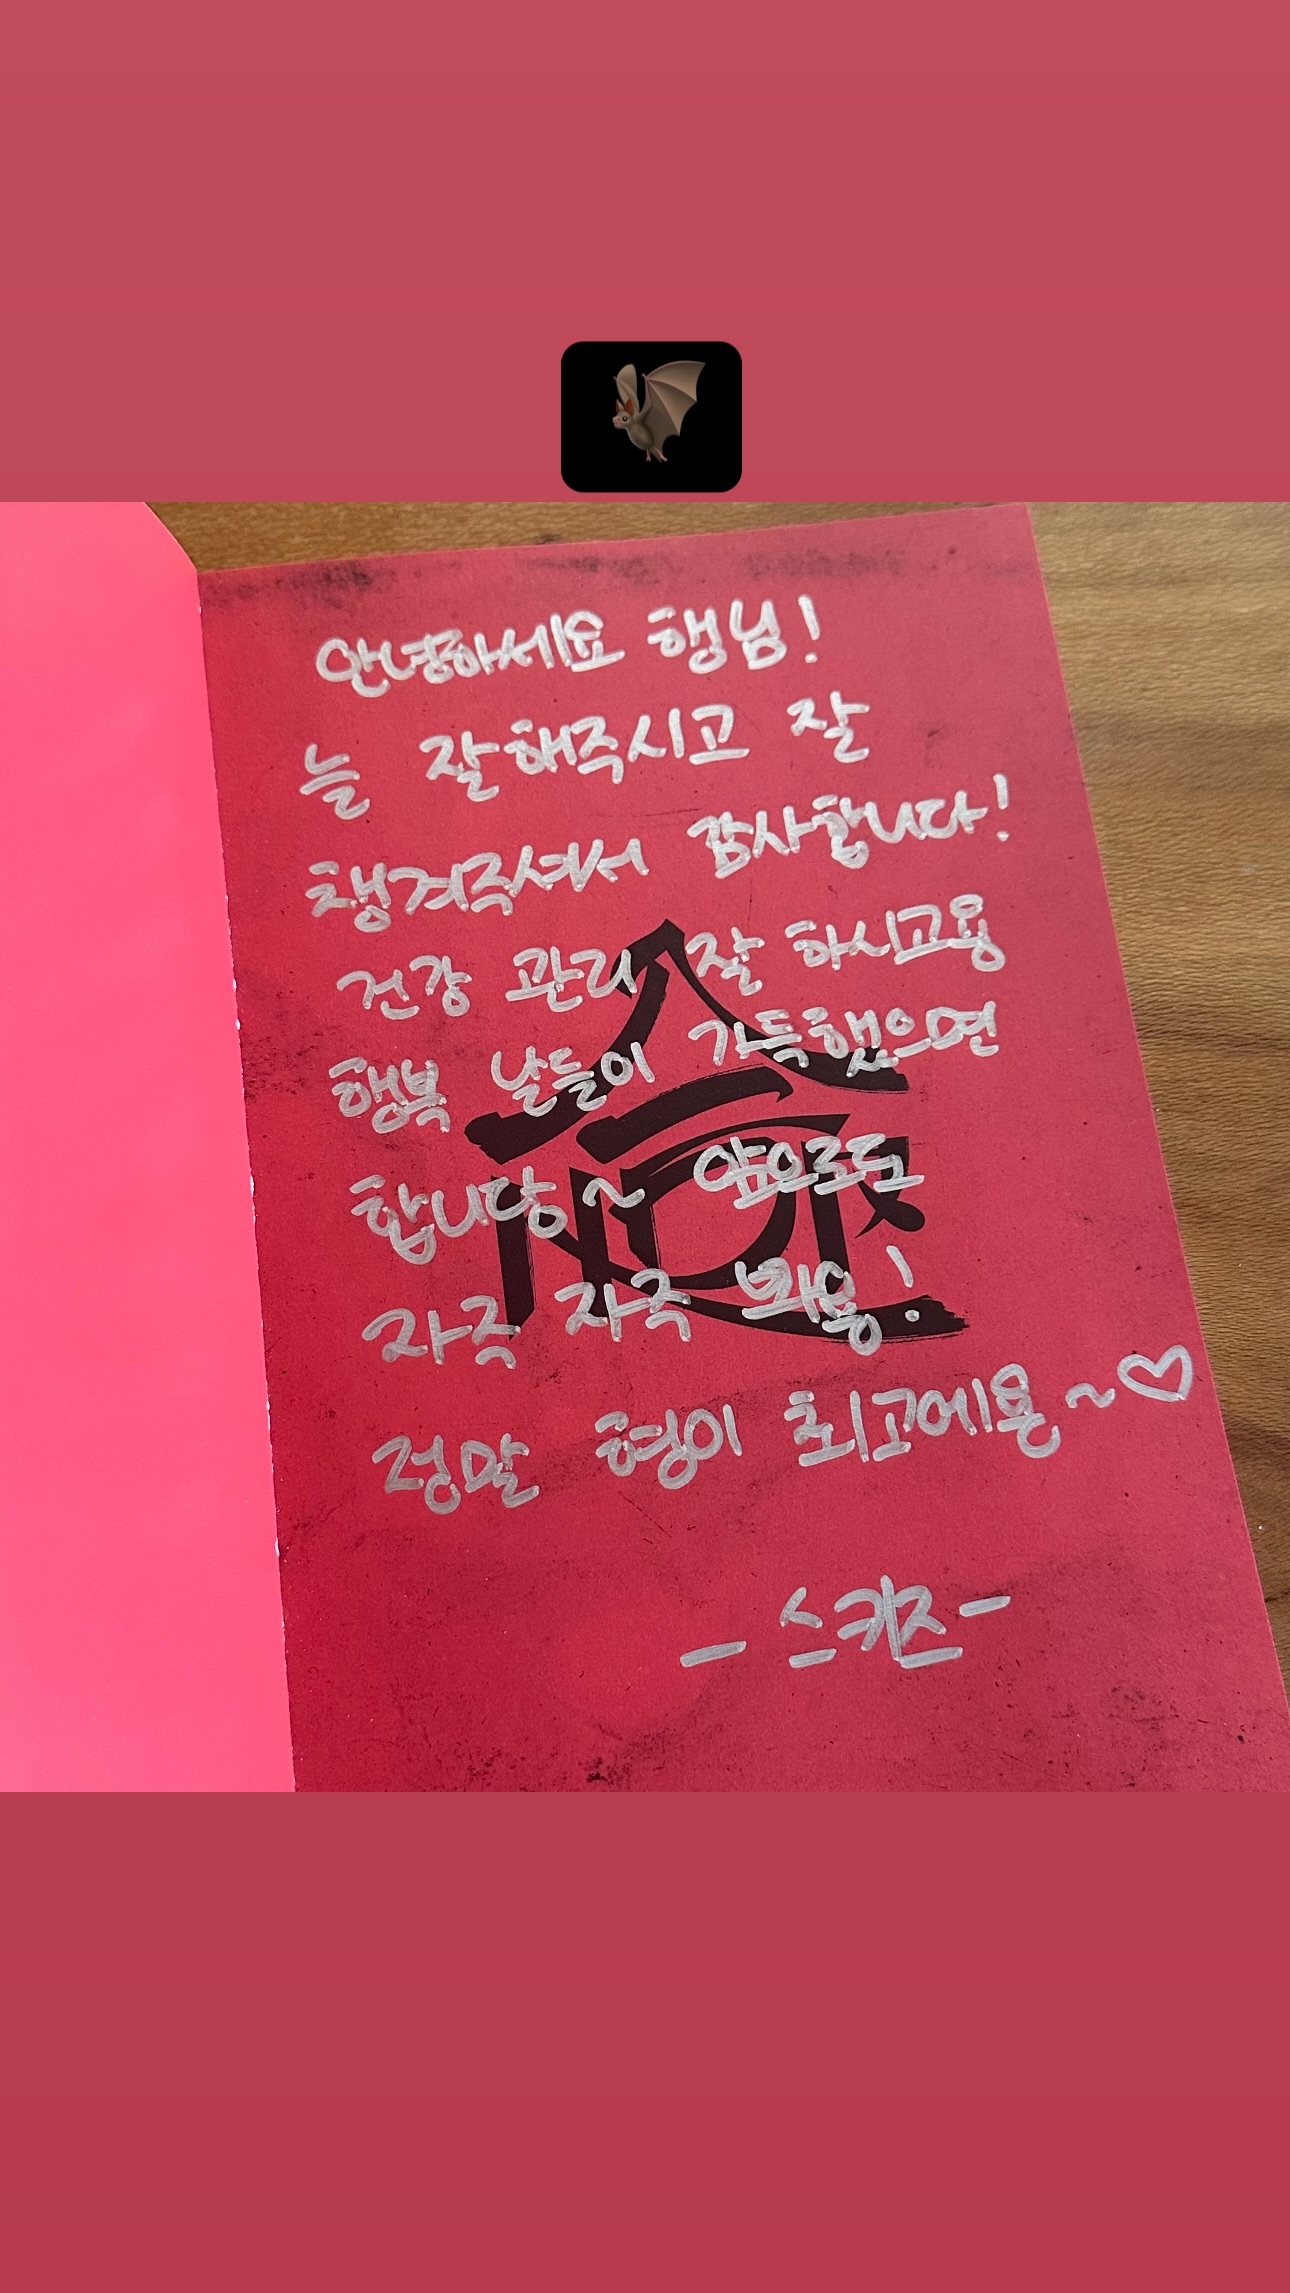 안녕하세요 행님!
늘 잘해주시고 잘
챙겨주셔서 감사합니다!
건강 관리 잘 하시고용
행복 날들이 가득했으면
합니당~ 앞으로도
자주 자주 봐용!
정말 형이 최고에용~♡
- 스키즈 -